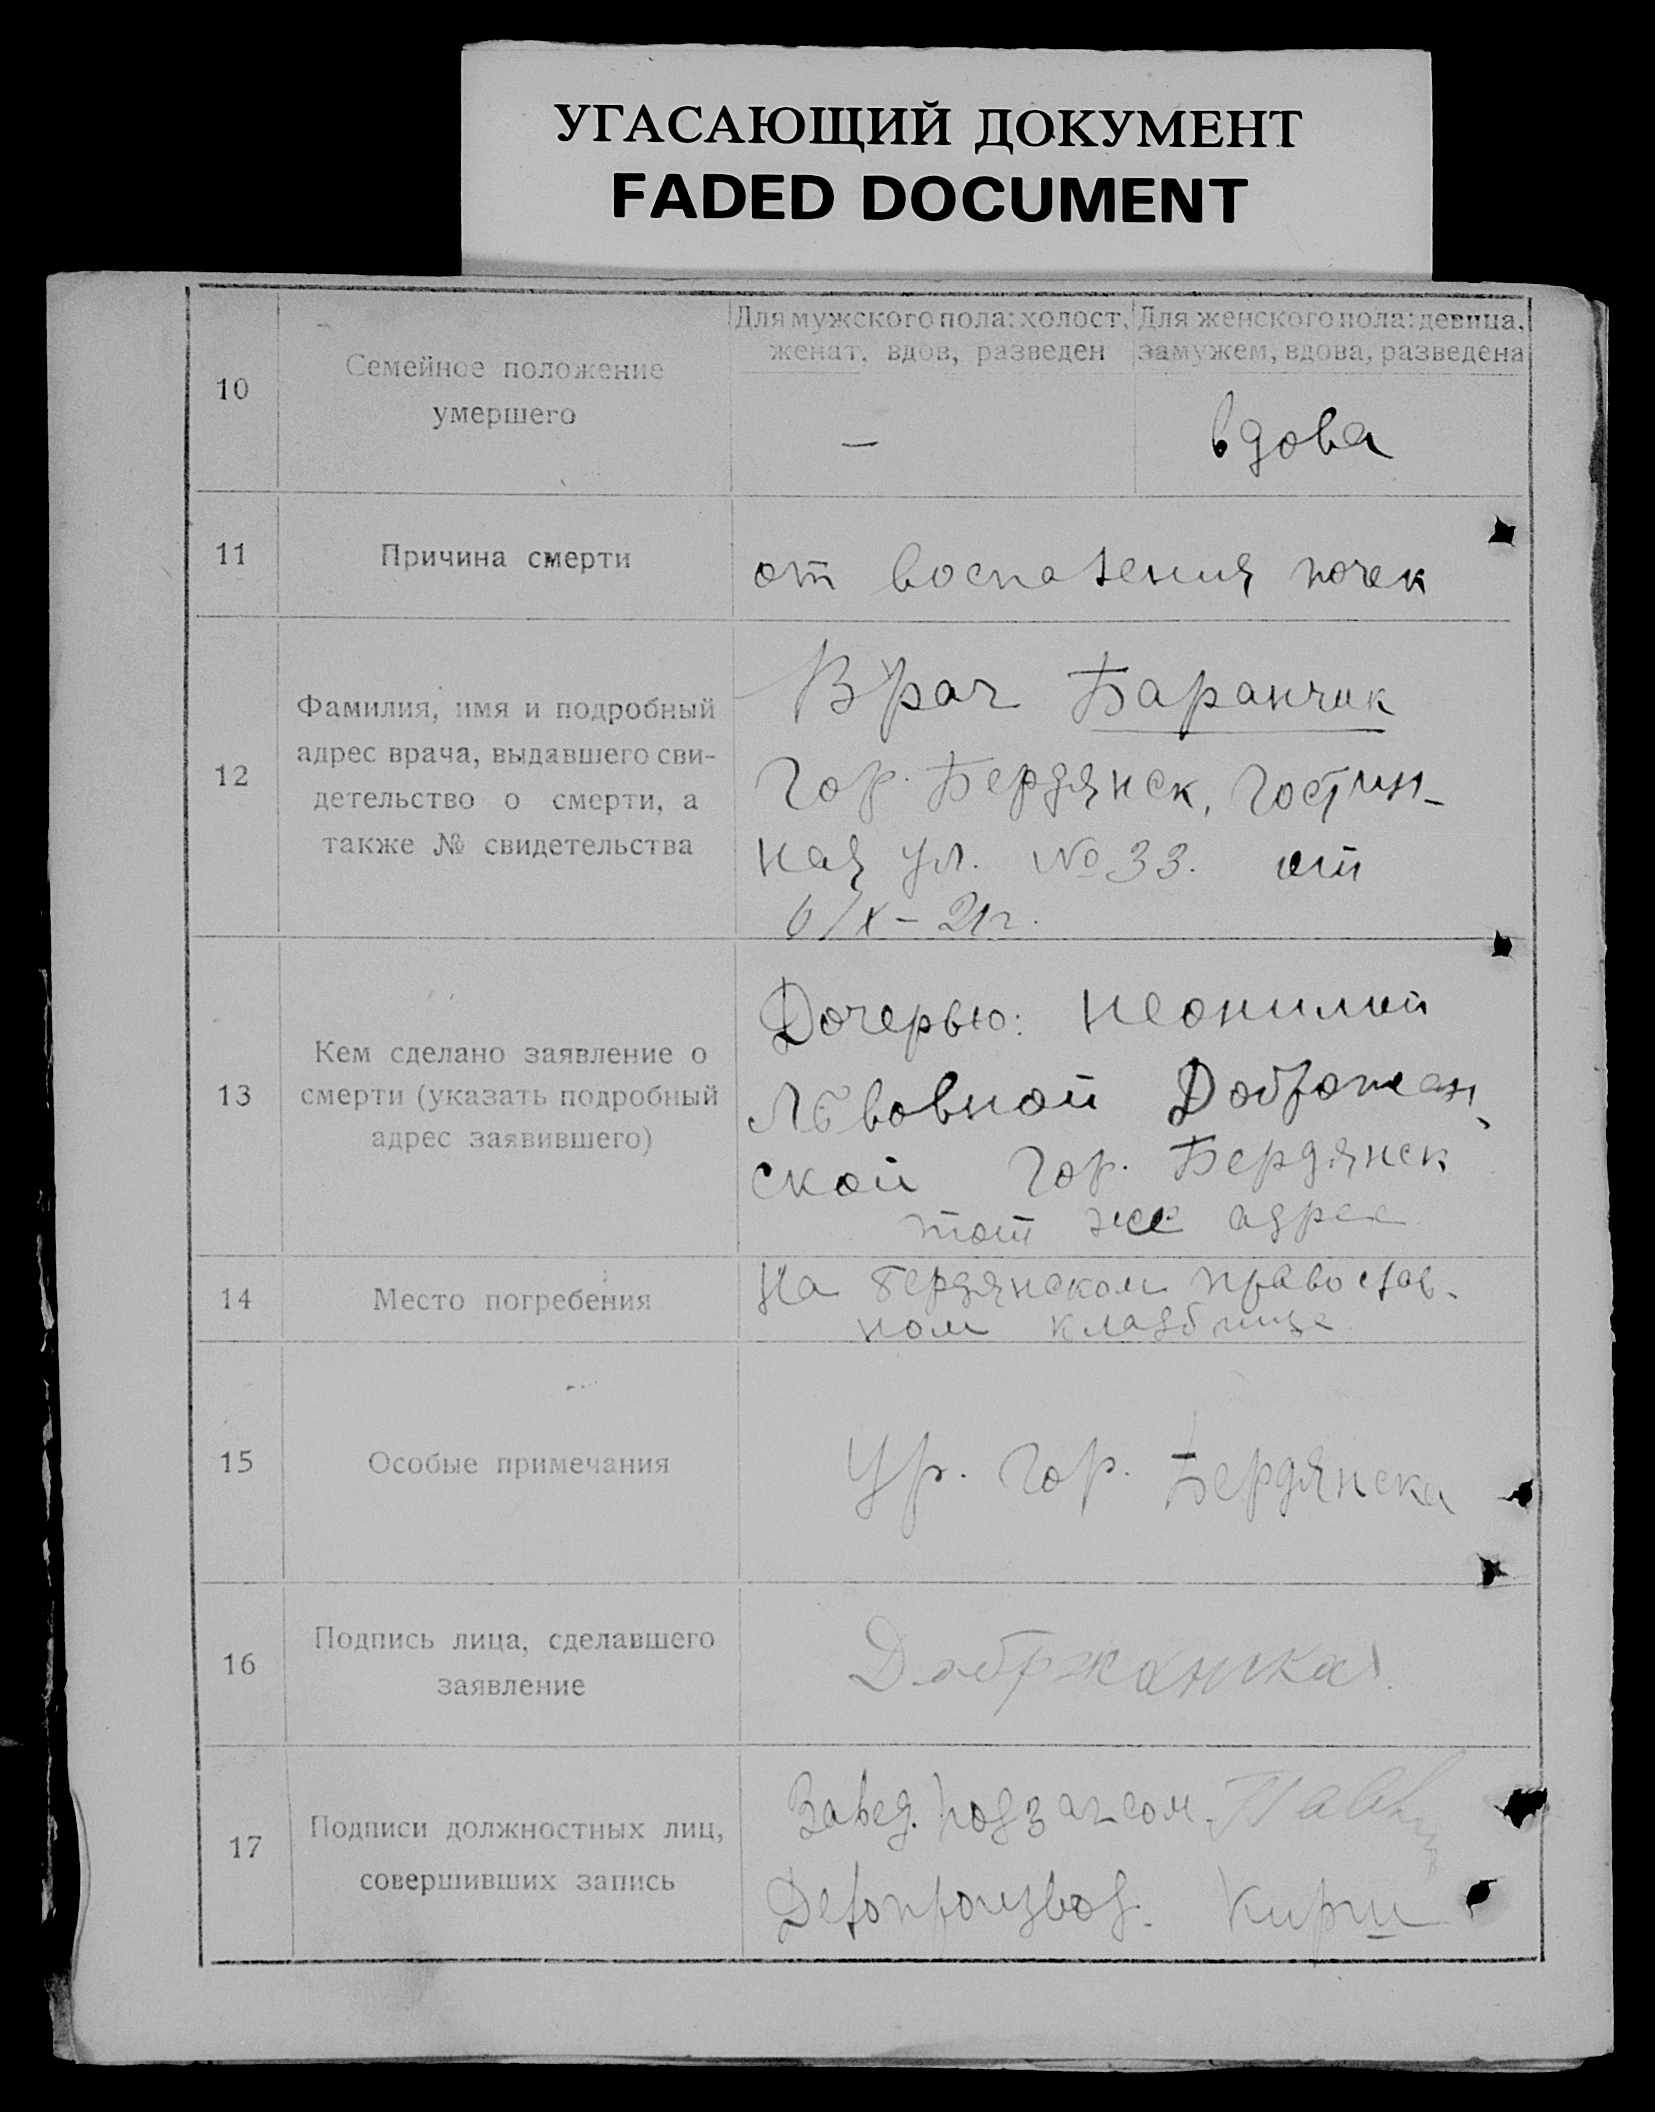 УГАСАЮЩИЙ ДОКУМЕНТ
FADED DOCUMENT
10
Семейное положение
умершего
Для мужского пола: холост,
женат, вдов, разведен
Для женского пола: девица,
замужем, вдова, разведена
—
вдова
11
Причина смерти
от воспаления почек
12
Фамилия, имя и подробный
адрес врача, выдавшего сви-
детельство о смерти, а
также № свидетельства
Врач Баранчик
Гор. Бердянск, Гостин-
ная ул. № 33. от
6/X – 21г.
13
Кем сделано заявление о
смерти (указать подробный
адрес заявившего)
Дочерью: Неонилой
Львовной Доброжан
ской Гор. Бердянск
тот же адрес
14
Место погребения
На Бердянском православ-
ном кладбище
15
Особые примечания
Ур. гор. Бердянска
16
Подпись лица, сделавшего
заявление
17
Подписи должностных лиц,
совершивших запись
Завед. подзагсом
Делопроизвод. Кирш